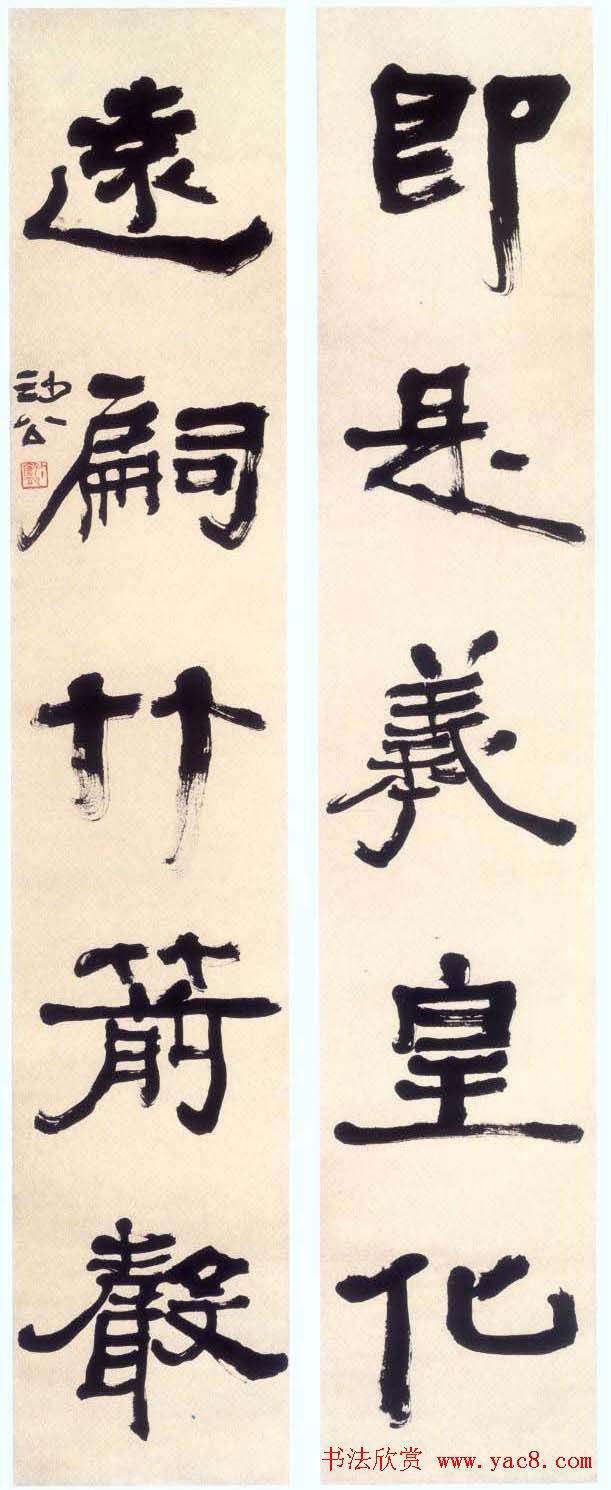 即是羲皇化
遠嗣竹箭聲
书法欣赏 www.yac8.com